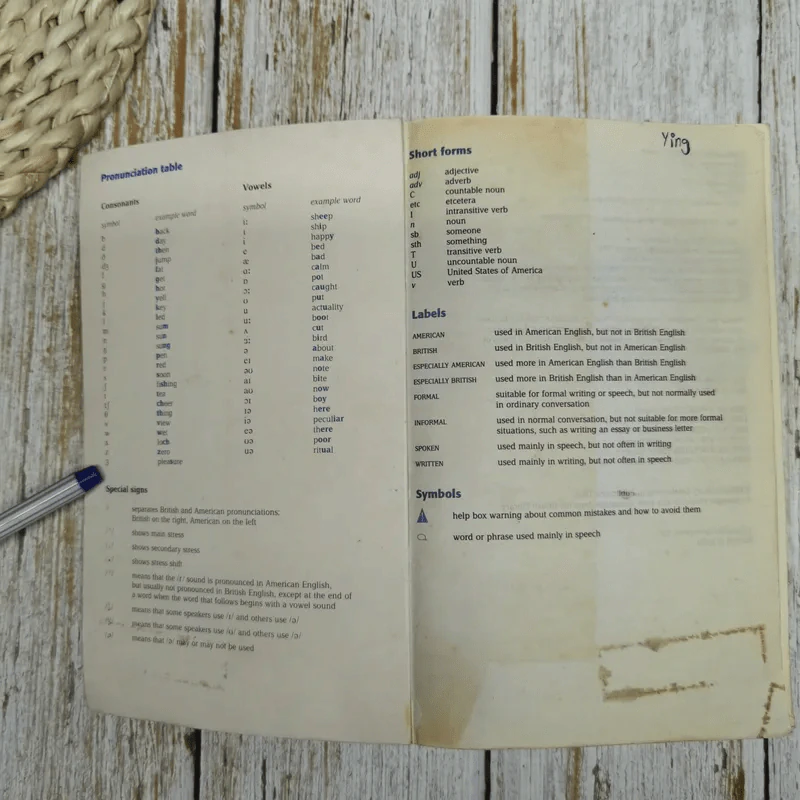 Pronunciation table
Consonants
symbol example word
b back
d day
ð then
dʒ jump
f fat
g get
h hot
j yell
k key
l led
m sum
n sun
ŋ sung
p pen
r red
s soon
ʃ fishing
t tea
tʃ cheer
θ thing
v view
w wet
x loch
z zero
ʒ pleasure
Vowels
symbol example word
iː sheep
ɪ ship
i happy
e bed
æ bad
ɑː calm
ɒ pot
ɔː caught
ʊ put
u actuality
uː boot
ʌ cut
ɜː bird
ə about
eɪ make
əʊ note
aɪ bite
aʊ now
ɔɪ boy
ɪə here
iə peculiar
eə there
ʊə poor
uə ritual
Special signs
separates British and American pronunciations:
British on the right, American on the left
shows main stress
shows secondary stress
shows stress shift
means that the /r/ sound is pronounced in American English,
but usually not pronounced in British English, except at the end of
a word when the word that follows begins with a vowel sound
means that some speakers use /ɪ/ and others use /ə/
means that some speakers use /ʊ/ and others use /ə/
/ə/ means that /ə/ may or may not be used
Ying
Short forms
adj adjective
adv adverb
C countable noun
etc etcetera
I intransitive verb
n noun
sb someone
sth something
T transitive verb
U uncountable noun
US United States of America
v verb
Labels
AMERICAN used in American English, but not in British English
BRITISH used in British English, but not in American English
ESPECIALLY AMERICAN used more in American English than British English
ESPECIALLY BRITISH used more in British English than in American English
FORMAL suitable for formal writing or speech, but not normally used
in ordinary conversation
INFORMAL used in normal conversation, but not suitable for more formal
situations, such as writing an essay or business letter
SPOKEN used mainly in speech, but not often in writing
WRITTEN used mainly in writing, but not often in speech
Symbols
help box warning about common mistakes and how to avoid them
word or phrase used mainly in speech